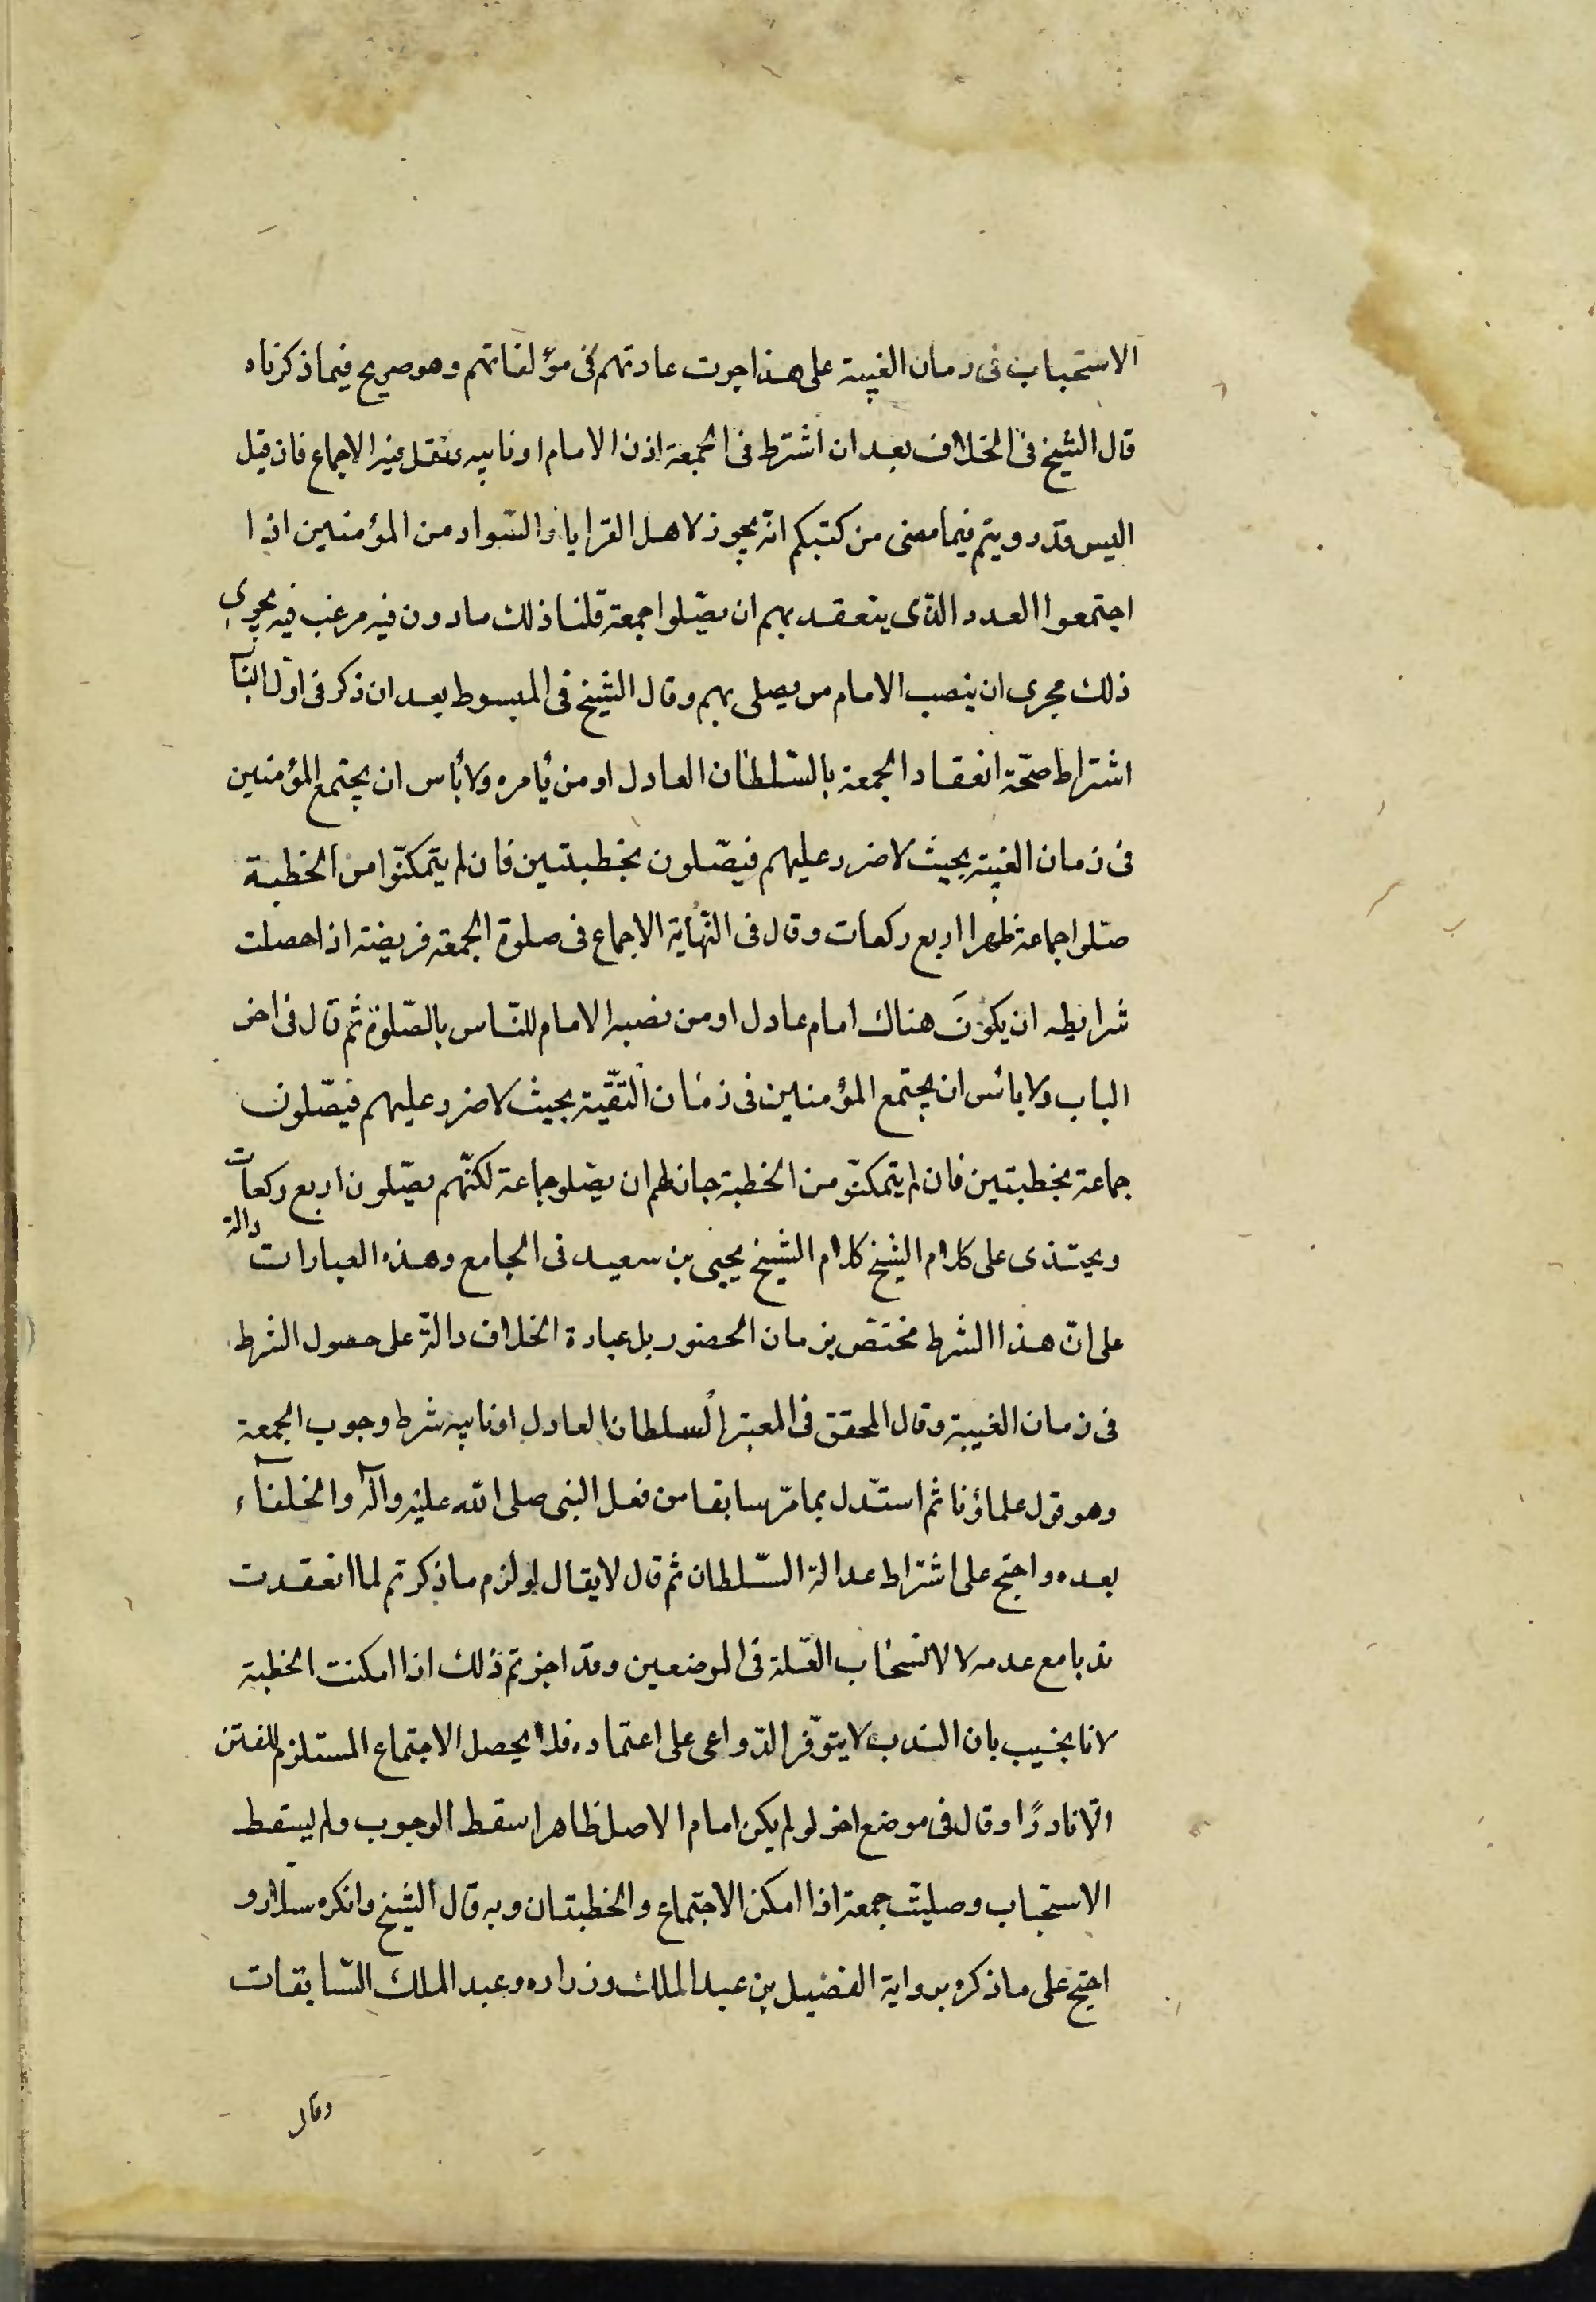 الاستحباب فى زمان الغيبة على هذا جرت عادتهم فى مؤلفاتهم وهو صريح فيما ذكرناه
قال الشيخ فى الخلاف بعد ان اشترط فى الجمعة اذن الامام او نايبه ونقل فيه الاجماع فان قيل
اليس قد رويتم فيما مضى من كتبكم انّه يجوز لاهل القرايا والسّواد من المؤمنين اذا
اجتمعوا العدد الذى ينعقد بهم ان يصّلوا جمعة قلنا ذلك ماذون فيه مرغب فيه يجرى
ذلك مجرى ان ينصب الامام من يصلى بهم وقال الشيخ فى المبسوط بعد ان ذكر فى اوّل الباب
اشتراط صحّة انعقاد الجمعة بالسّلطان العادل او من يأمره ولا بأس ان يجتمع المؤمنين
فى زمان الغيبة بحيث لا ضرر عليهم فيصّلون بخطبتين فان لم يتمكنّوا من الخطبة
صلّوا جماعة ظهرا اربع ركعات وقال فى النّهاية الاجماع فى صلوة الجمعة فريضة اذا حصلت
شرايطه ان يكونَ هناك امام عادل او من نصبه الامام للنّاس بالصّلوة ثم قال فى اخر
الباب ولا بائس ان يجتمع المؤمنين فى زمان التقيّة بحيث لا ضرر عليهم فيصّلون
جماعة بخطبتين فان لم يتمكنّو من الخطبة جاز لهم ان يصّلو جماعة لكنّهم يصّلون اربع ركعات
ويحتذى على كلام الشيخ كلام الشيخ يحيى بن سعيد فى الجامع وهذه العبارات دالة
على انّ هذا الشرط مختصّ بزمان الحضور بل عبارة الخلاف دالّة على حصول الشرط
فى زمان الغيبة وقال المحقق فى المعتبر السلطان العادل او نايبه شرط وجوب الجمعة
وهو قول علماؤنا ثم استدّل بما مرّ سابقا من فعل النبى صلى الله عليه وآله والخلفآء
بعده واحتج على اشتراط عدالة السّلطان ثم قال لا يقال لو لزم ما ذكرتم لما انعقدت
ندبا مع عدمه لا لانسحاب العّلة فى الموضعين وقد اجزتم ذلك اذا امكنت الخطبة
لانا نجيب بان الندب لا يتوفّر الدّواعى على اعتماده فلا يحصل الاجتماع المستلزم للفتن
الّا نادرًا وقال فى موضع اخر لو لم يكن امام الاصل ظاهرا سقط الوجوب ولم يسقط
الاستحباب وصليت جمعة اذا امكن الاجتماع والخطبتان وبه قال الشيخ وانكره سلّار و
احتج على ما ذكره برواية الفضيل بن عبد الملك وزراره وعبد الملك السّابقات
وقال